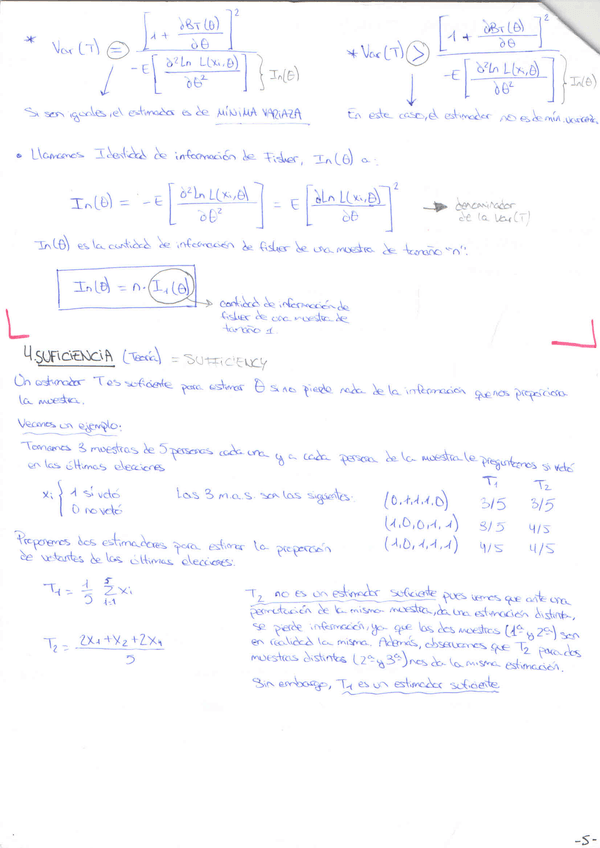 * Var(T) = [1 + ∂B_T(θ)/∂θ]² / -E[∂²Ln L(xi,θ)/∂θ²] } In(θ)
* Var(T) > [1 + ∂B_T(θ)/∂θ]² / -E[∂²Ln L(xi,θ)/∂θ²] } In(θ)
Si son iguales, el estimador es de MÍNIMA VARIAZA
En este caso, el estimador no es de mín. varianza.
• Llamamos Identidad de información de Fisher, In(θ) a:
In(θ) = -E[∂²Ln L(xi,θ)/∂θ²] = E[∂Ln L(xi,θ)/∂θ]² → denominador
de la Var(T)
In(θ) es la cantidad de información de fisher de una muestra de tamaño "n":
In(θ) = n· I₁(θ)
→ cantidad de información de
fisher de una muestra de
tamaño 1.
4. SUFICIENCIA (Teoría) = SUFFICIENCY
Un estimador T es suficiente para estimar θ si no pierde nada de la información que nos proporciona
la muestra.
Veamos un ejemplo:
Tomamos 3 muestras de 5 personas cada una y a cada persona de la muestra le preguntamos si votó
en las últimas elecciones
T₁ T₂
xi { 1 si votó
0 no votó
Las 3 m.a.s. son las siguientes:
(0,1,1,1,0) 3/5 3/5
(1,0,0,1,1) 3/5 4/5
(1,0,1,1,1) 4/5 4/5
Proponemos dos estimadores para estimar la proporción
de votantes de las últimas elecciones:
T₁ = 1/5 Σ⁵ᵢ₌₁ xi
T₂ = 2x₁+x₂+2x₄ / 5
T₂ no es un estimador suficiente pues vemos que ante una
permutación de la misma muestra, da una estimación distinta,
se pierde información, ya que las dos muestras (1ª y 2ª) son
en realidad la misma. Además, observamos que T₂ para dos
muestras distintas (2ª y 3ª) nos da la misma estimación.
Sin embargo, T₁ es un estimador suficiente
-5-